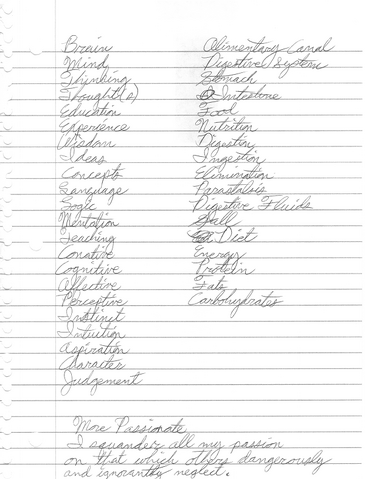 Brain
Mind
Thinking
Thought(s)
Education
Experience
Wisdom
Ideas
Concepts
Language
Logic
Mentation
Teaching
Conative
Cognitive
Affective
Perceptive
Instinct
Intuition
Aspiration
Character
Judgement
Alimentary Canal
Digestive System
Stomach
Intestine
Food
Nutrition
Digestion
Ingestion
Elimination
Parastalsis
Digestive Fluids
Gall
Diet
Energy
Protein
Fats
Carbohydrates
More Passionate
I squander all my passion
on that which others dangerously
and ignorantly neglect.